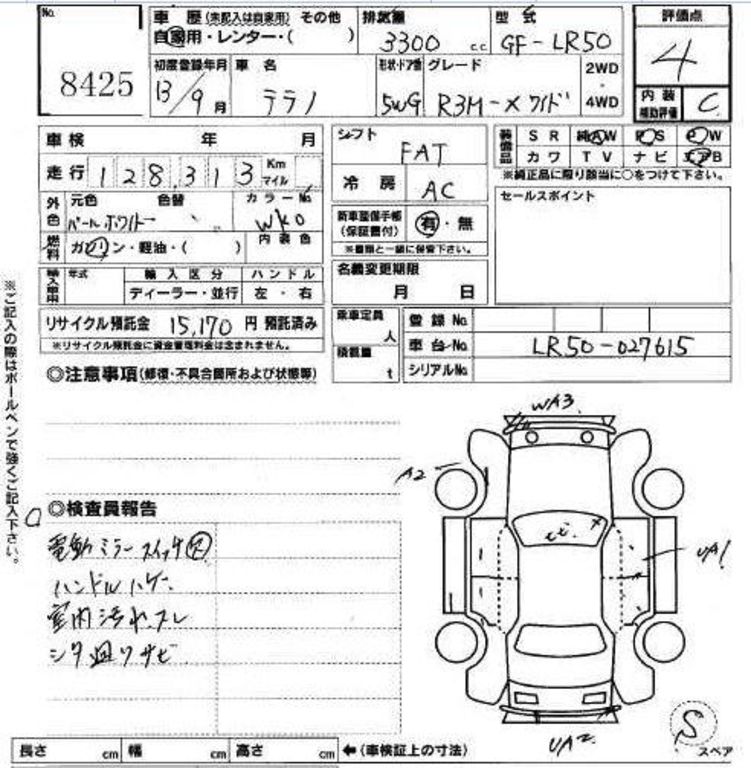 No. 8425
車歴(未記入は自家用) その他
自家用・レンター・( )
排気量 3300 c.c
型式 GF-LR50
評価点 4
内装補助評価 C
初度登録年月 13/9月
車名 テラノ
形状・ドア数 5WG
グレード R3M-X ワイド
2WD
4WD
車検 年 月
走行 128,313 Km マイル
外色 元色 パールホワイト 色替
カラーNo. WK0
内装色
燃料 ガソリン・軽油・( )
輸入車用 年式 輸入区分 ハンドル
ディーラー・並行 左・右
リサイクル預託金 15,170 円 預託済み
※リサイクル預託金に資金管理料金は含まれません。
シフト FAT
冷房 AC
新車整備手帳(保証書付) 有・無
※書類と一緒に保管下さい。
名義変更期限
月 日
乗車定員 人
積載量 t
装備品 SR 純AW PS PW
カワ TV ナビ エアB
※純正品に限り該当に○をつけて下さい。
セールスポイント
登録No.
車台No. LR50-027615
シリアルNo.
◎注意事項(修復・不具合箇所および状態等)
◎検査員報告
電動ミラースイッチ欠
ハンドルハゲ
室内汚れ、スレ
シタ廻りサビ
※ご記入の際はボールペンで強くご記入下さい。
WA3
A2
UA1
UA2
S
スペア
長さ cm 幅 cm 高さ cm ←(車検証上の寸法)